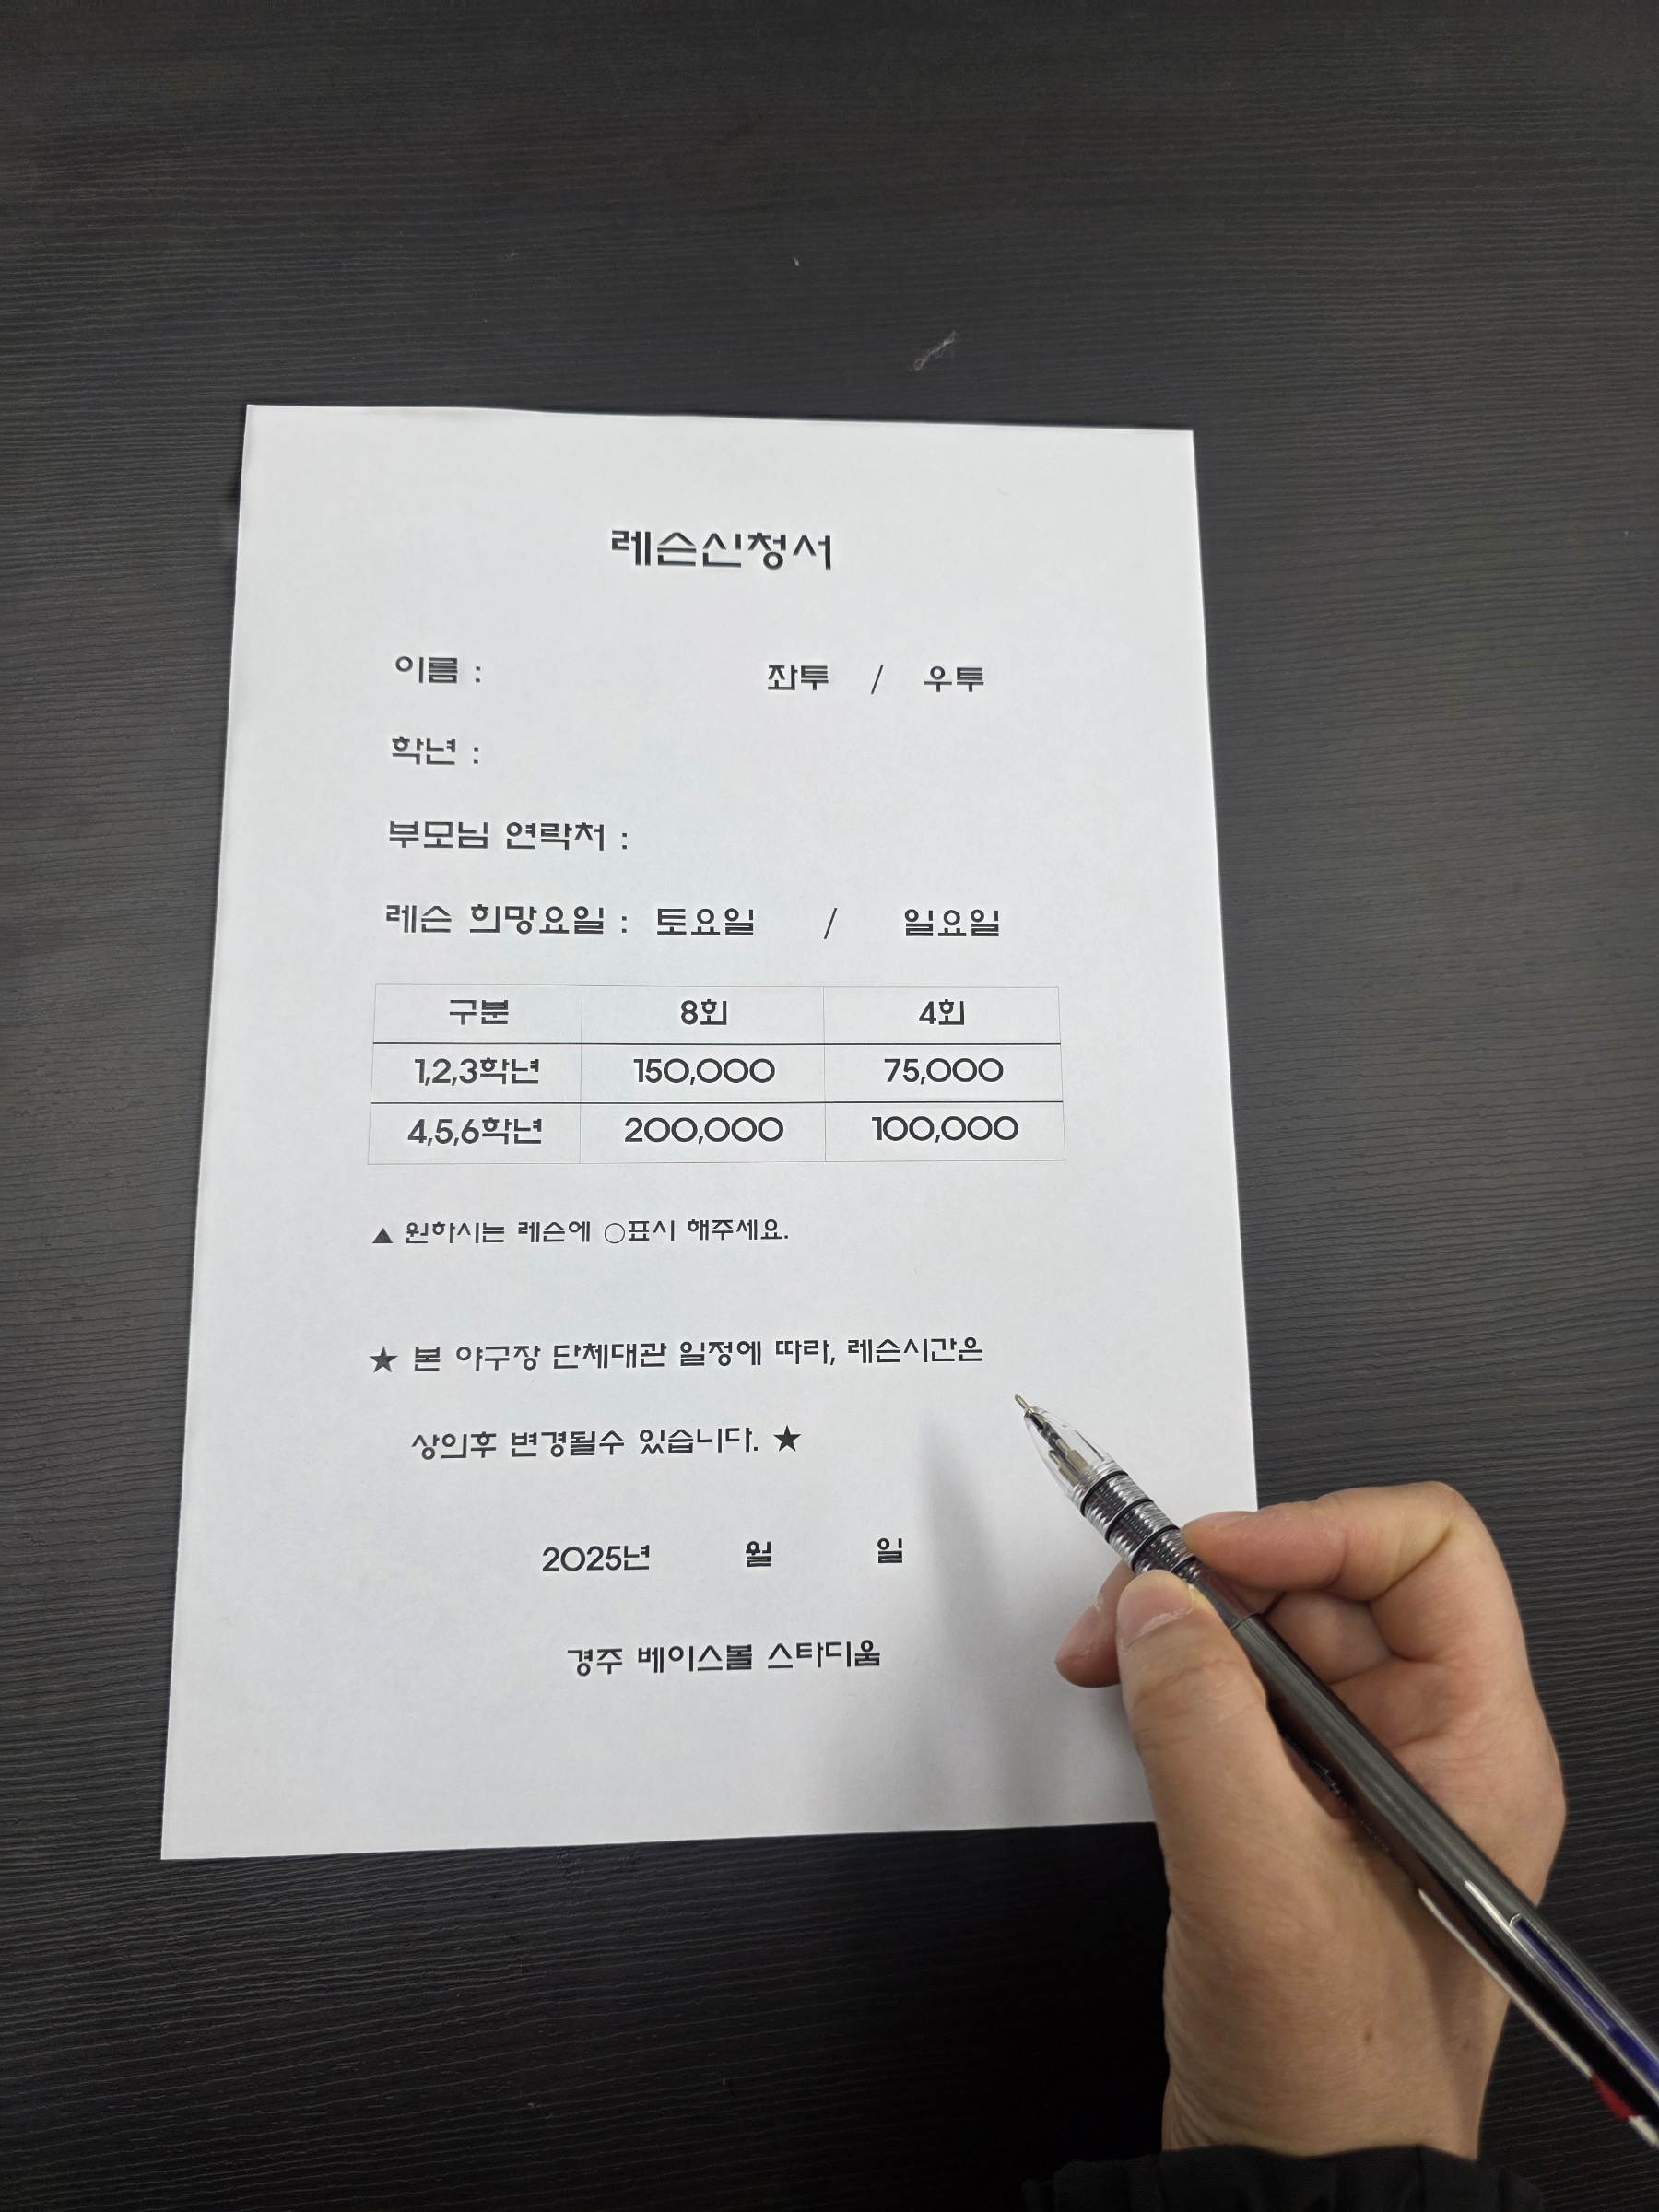 레슨신청서
이름 : 좌투 / 우투
학년 :
부모님 연락처 :
레슨 희망요일 : 토요일 / 일요일
구분 8회 4회
1,2,3학년 150,000 75,000
4,5,6학년 200,000 100,000
▲ 원하시는 레슨에 ○표시 해주세요.
★ 본 야구장 단체대관 일정에 따라, 레슨시간은
상의후 변경될수 있습니다. ★
2025년 월 일
경주 베이스볼 스타디움